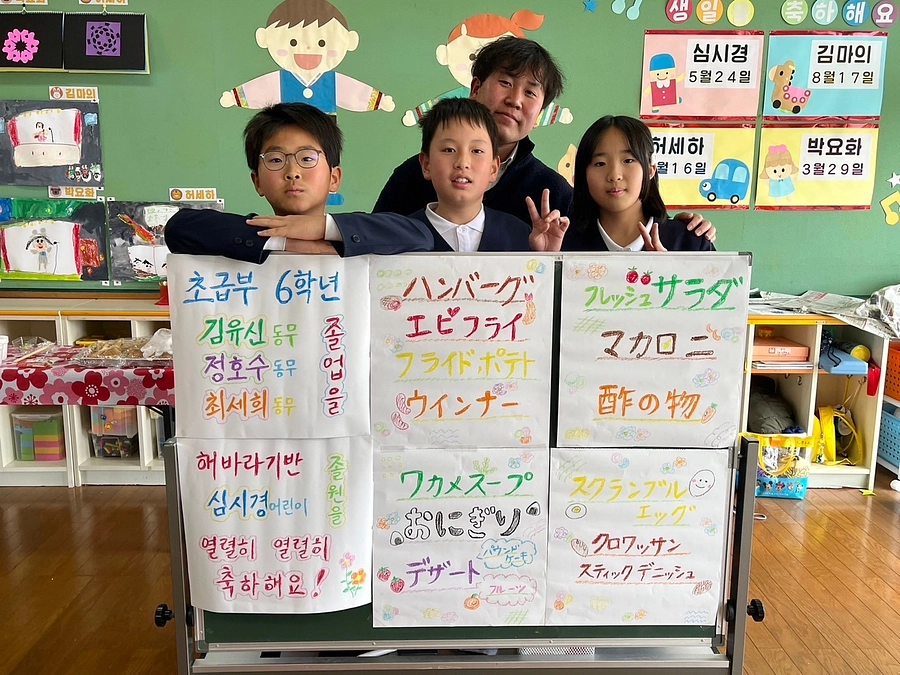 박요화
김마의
김마의
박요화
허세하
생일을 축하해요
심시경
5월24일
김마의
8월17일
허세하
월16일
박요화
3월29일
초급부 6학년
김유신동무
정호수동무
최세희동무
졸업을
해바라기반
심시경어린이
졸원을
열렬히 열렬히
축하해요!
ハンバーグ
エビフライ
フライドポテト
ウインナー
フレッシュサラダ
マカロニ
酢の物
ワカメスープ
おにぎり
デザート
パウンドケーキ
フルーツ
スクランブル
エッグ
クロワッサン
スティックデニッシュ